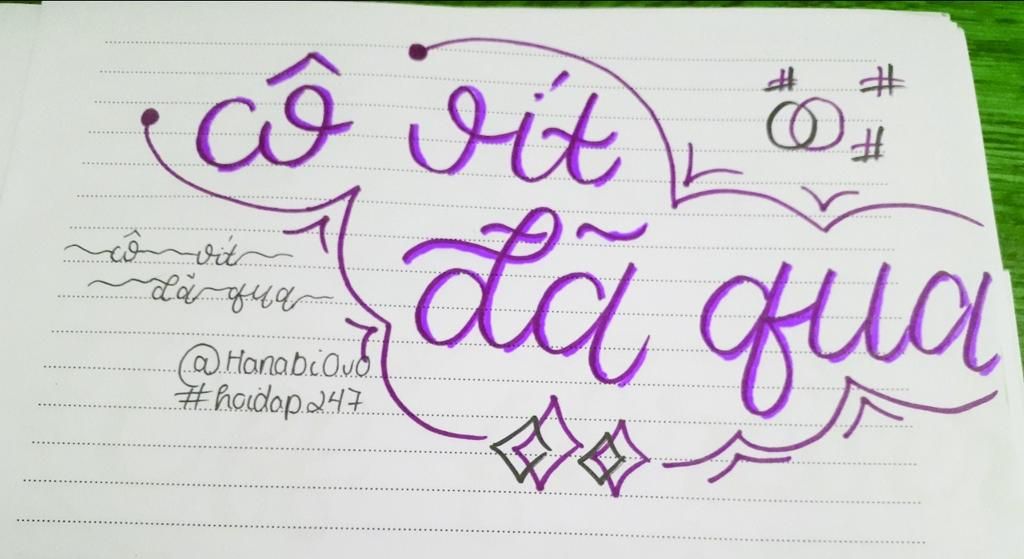 cô vít
đã qua
cô vít
đã qua
@HanabiOvO
#hoidap247
# #
#